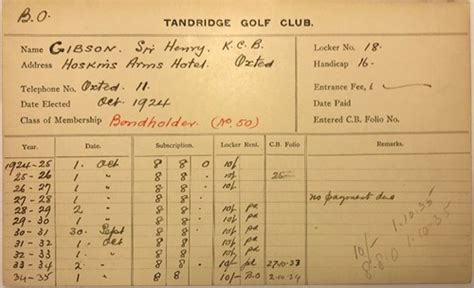 B.O.
TANDRIDGE GOLF CLUB.
Name GIBSON. Sir Henry K.C.B. Locker No. 18.
Address Hoskins Arms Hotel. Oxted Handicap 16.
Telephone No. Oxted 11. Entrance Fee,
Date Elected Oct 1924 Date Paid
Class of Membership Bondholder (No. 50) Entered C.B. Folio No.
Year. Date. Subscription. Locker Rent. C.B. Folio Remarks.
1924-25 1. Oct 8 8 0 10/-
25-26 1 " 8 8 10/- 25
26-27 1 " 8 8 10/-
27-28 1 " 8 8 10/- no payment due
28-29 2 " 8 8 10/- pd
29-30 1 " 8 8 10/- pd
30-31 30 Sept 8 8 10/- pd
31-32 1 Oct 8 8 10/- pd
32-33 1 " 8 8 10/- pd
33-34 2 " 8 8 10/- pd 27.10.33
34-35 1 " 8 8 10/- B.O 2.10.34
10/- 1.10.35
8.8.0 1.10.35